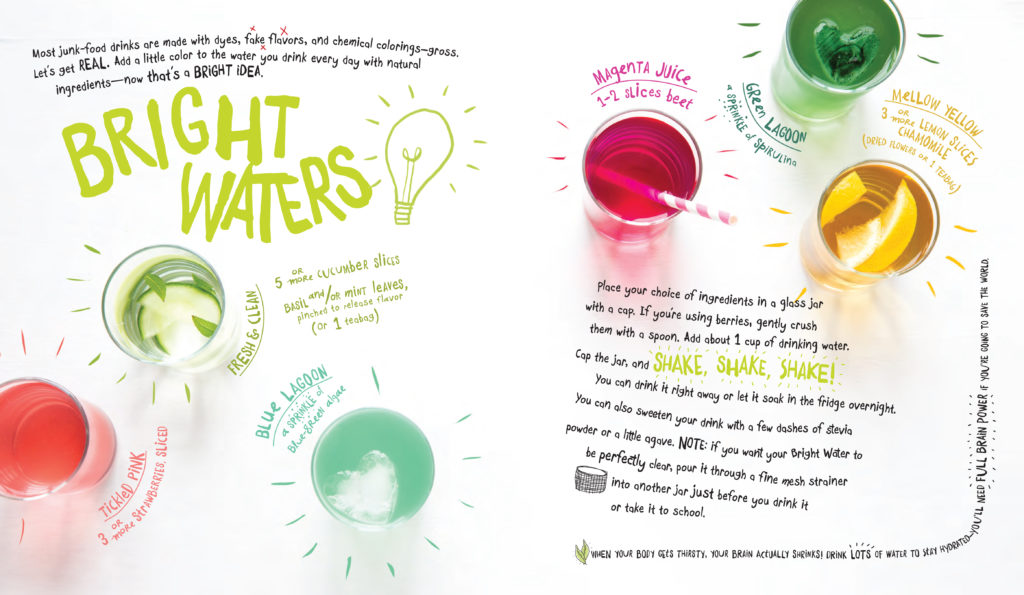 Most junk-food drinks are made with dyes, fake flavors, and chemical colorings—gross.
Let's get REAL. Add a little color to the water you drink every day with natural
ingredients—now that's a BRIGHT IDEA.
BRIGHT
WATERS
5 or more cucumber slices
BASIL and/or MINT LEAVES,
pinched to release flavor
(or 1 teabag)
FRESH & CLEAN
BLUE LAGOON
a SPRINKLE of
BLUE-GREEN ALGAE
TICKLED PINK
3 or more STRAWBERRIES, SLICED
MAGENTA JUICE
1-2 slices beet
GREEN LAGOON
a SPRINKLE of spirulina
MELLOW YELLOW
3 or more LEMON SLICES
CHAMOMILE
(DRIED FLOWERS OR 1 TEABAG)
Place your choice of ingredients in a glass jar
with a cap. If you're using berries, gently crush
them with a spoon. Add about 1 cup of drinking water.
Cap the jar, and SHAKE, SHAKE, SHAKE!
You can drink it right away or let it soak in the fridge overnight.
You can also sweeten your drink with a few dashes of stevia
powder or a little agave. NOTE: if you want your Bright Water to
be perfectly clear, pour it through a fine mesh strainer
into another jar just before you drink it
or take it to school.
WHEN YOUR BODY GETS THIRSTY, YOUR BRAIN ACTUALLY SHRINKS! DRINK LOTS OF WATER TO STAY HYDRATED—YOU'LL NEED FULL BRAIN POWER IF YOU'RE GOING TO SAVE THE WORLD.